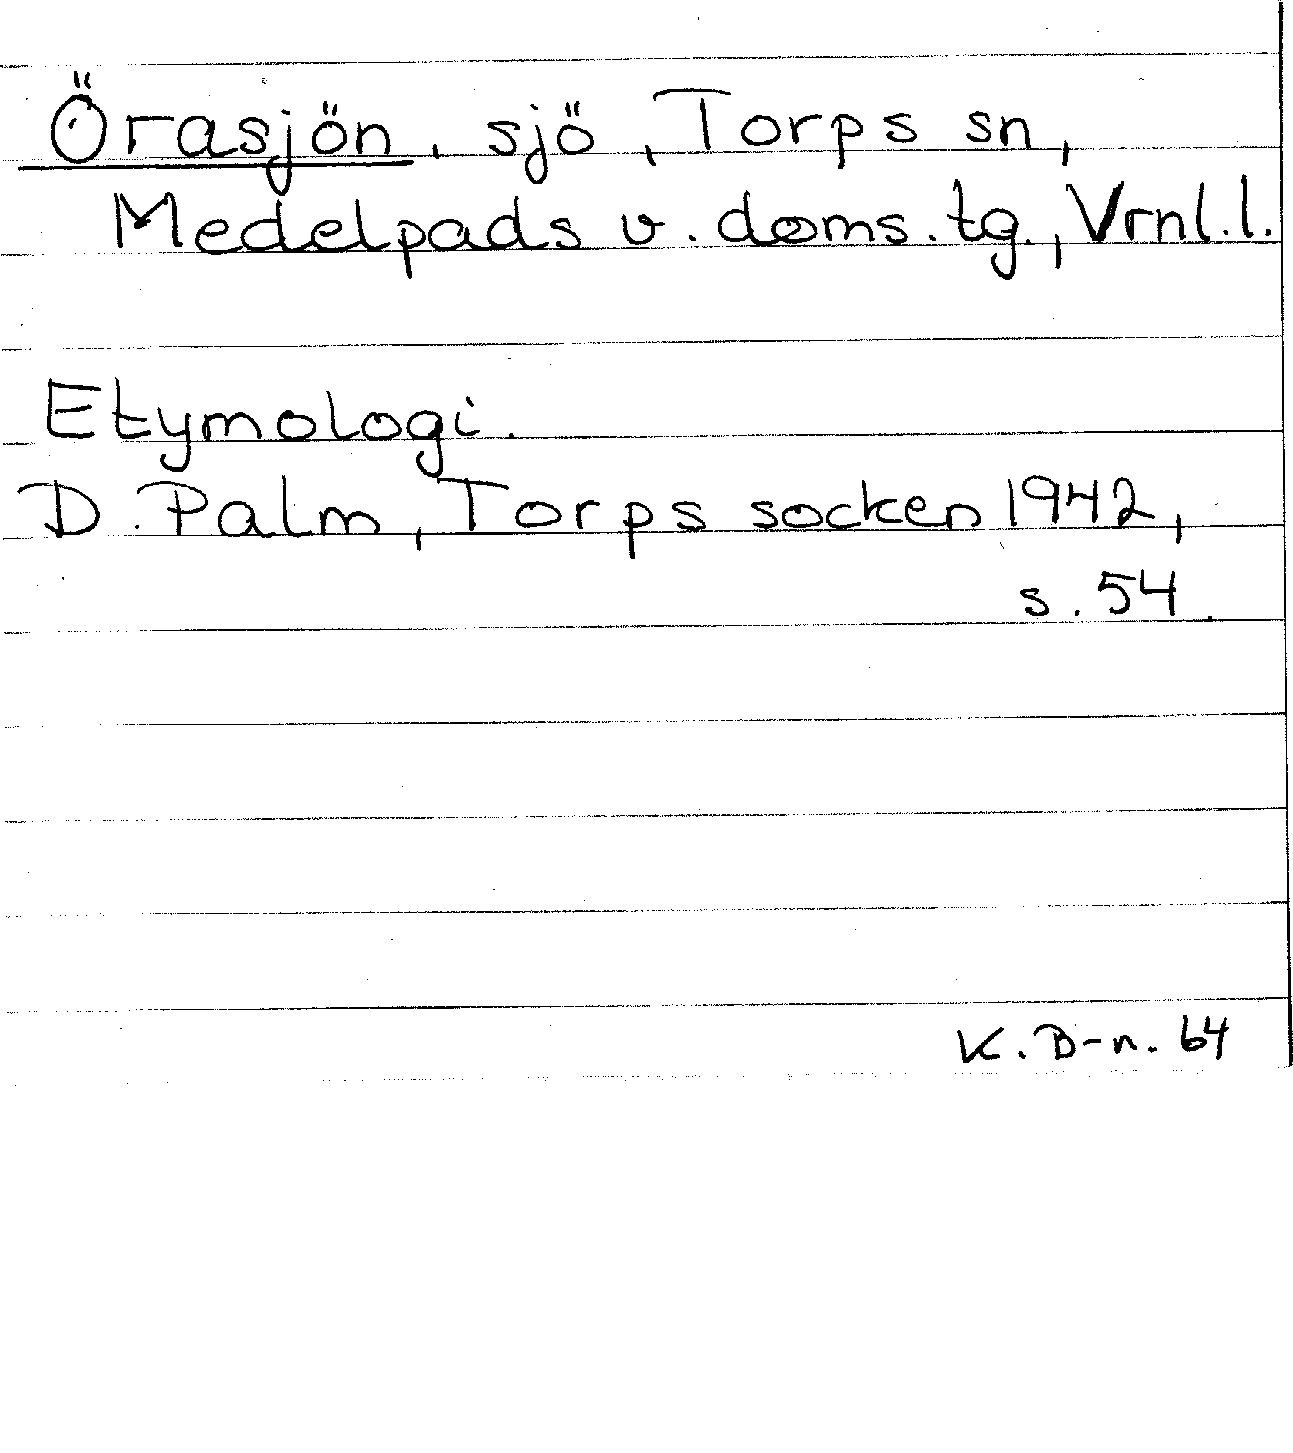 Örasjön, sjö, Torps sn,
Medelpads v. doms. tg., Vrnl. l.
Etymologi.
D. Palm, Torps socken 1942,
s. 54.
K. B-n. 64